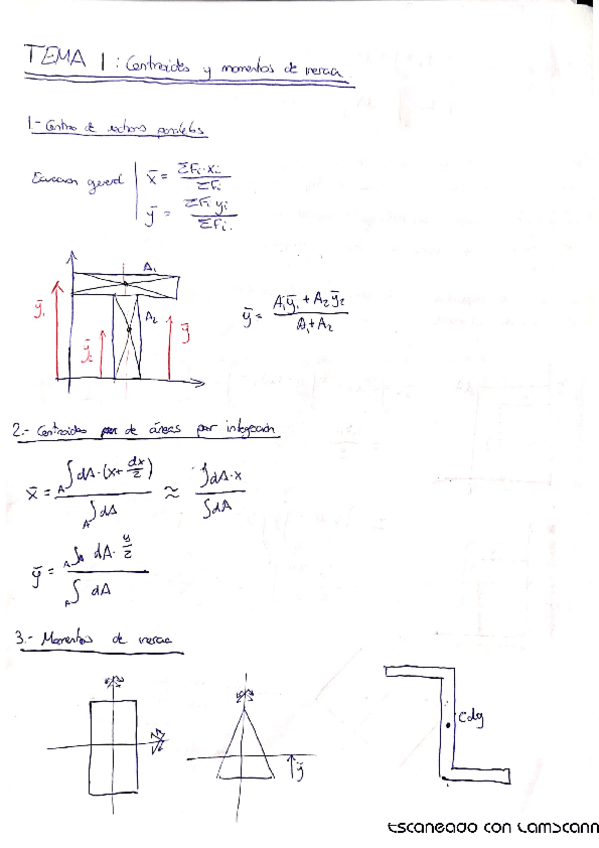 TEMA 1: Centroides y momentos de inercia
1.- Centro de vectores paralelos
Ecuacion general x̄ = ΣFi·xi / ΣFi
ȳ = ΣFi yi / ΣFi
A₁
ȳ₁ A₂ ȳ₂ ȳ
ȳ = A₁ȳ₁ + A₂ȳ₂ / A₁+A₂
2.- Centroides de áreas por integración
x̄ = A∫dA·(x+dx/2) / A∫dA ≈ ∫dA·x / ∫dA
ȳ = A∫ dA·y/2 / A∫ dA
3.- Momentos de inercia
Cdg
ȳ
Escaneado con CamScann